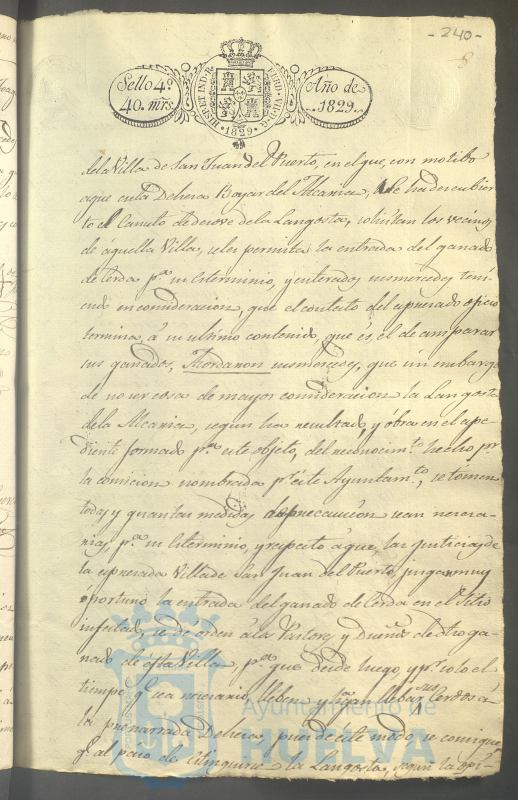 -240-
Sello 4º
40. mrs
HISP. ET IND. R.
FERD. VII. D. G.
·1829·
Año de
1829.
dela Villa de San Juan del Puerto, en el que, con motibo
aque en la Dehesa Bajar del Alcaria, se ha descubier
to el Canuto de desove dela Langosta, solicitan los vecinos
de aquella Villa, seles permita la entrada del ganado
de Cerda pª su Esterminio, y enterados susmercedes teni
endo enconsideracion, que el contesto del espresado oficio
termina, á su ultimo contenido, que és, el de amparar
sus ganados, Acordaron susmercedes, que sin embargo
de no ser cosa de mayor consideracion la Langosta
dela Alcaria, segun ha resultado, y óbra en el espe-
diente formado pª este objeto, del reconocimtº hecho pr
la comicion nombrada pr este Ayuntamtº, se tómen
todas y quantas medidas de precaucion sean necesa-
rias, pª su Esterminio, y respecto á que, las justicias de
la espresada Villa de San Juan del Puerto, juzgan muy
óportuno la entrada del ganado de Cerda en el Sitio
infestado, se dé orden á los Pastores y Dueños de dho ga-
nado de esta Villa, pª que desde luego, y pr solo el
tiempo qe sea necesario, lleben y hagan llebar sus Cerdos á
la prenarrada Dehesa, pues de este modo, se consigue
qe al paso de Estinguirse la Langosta, segun la opi-
Ayuntamiento de
HUELVA